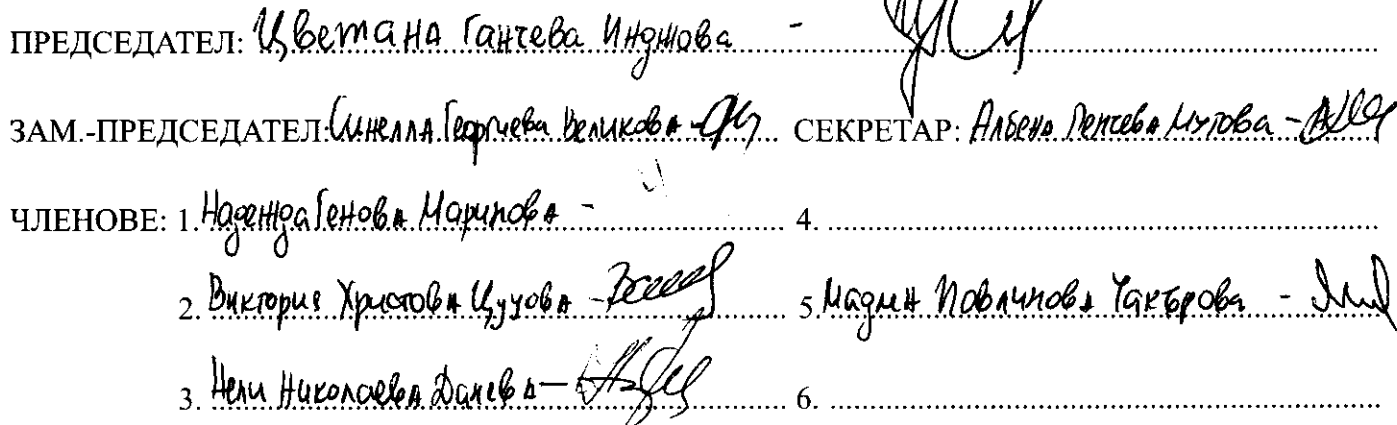 ПРЕДСЕДАТЕЛ: Цветана Ганчева Инджова -
ЗАМ.-ПРЕДСЕДАТЕЛ: Синелла Георгиева Великова - СЕКРЕТАР: Албена Пенчева
ЧЛЕНОВЕ: 1. Надежда Генова Маринова - 4.
2. Виктория Христова - 5. Павлинова -
3. Нели Николаева Данева - 6.